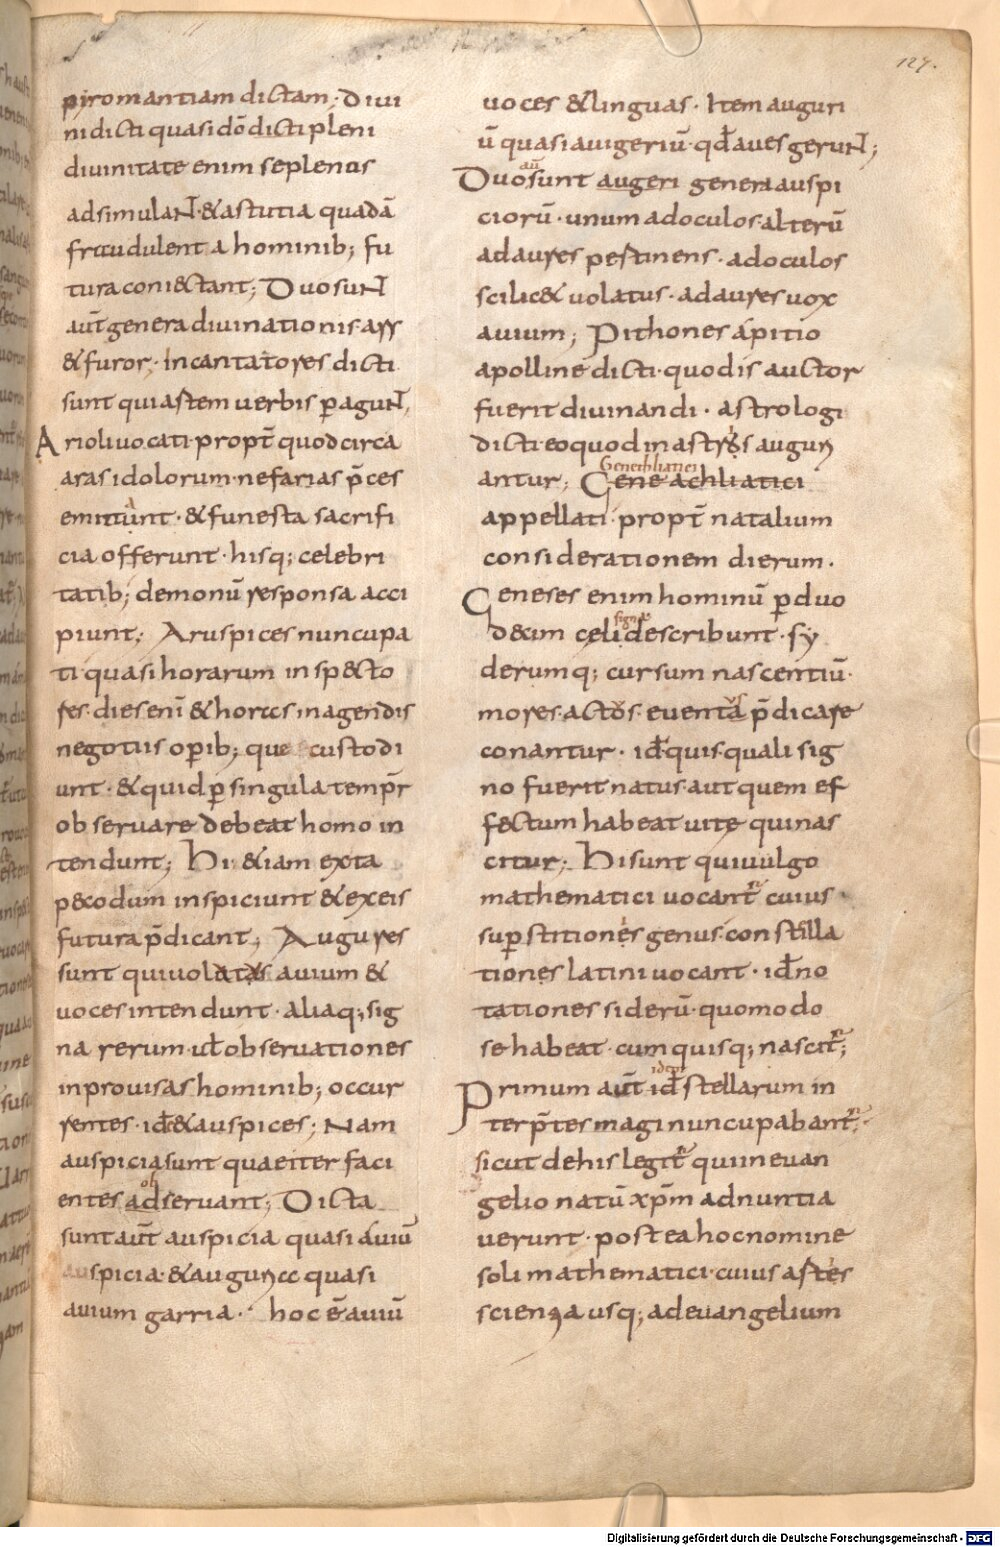 127.
pyromantiam dictam; Divi
ni dicti quasi dō dicti pleni
divinitate enim se plenos
adsimulaNT· & astutia quadā
fraudulenta hominib; fu
tura coniectant; Duo suNT
aūt genera divinationis· ars
& furor· Incantatores dicti
sunt qui astem verbis ꝑaguNT,
Arioli vocati· propt̄ quod circa
aras idolorum· nefarias p̄ces
emittunt· & funesta sacrifi
cia offerunt· hisq; celebri
tatib; demonū responsa acci
piunt; Aruspices nuncupa
ti· quasi horarum inspecto
res· dies enī & horas in agendis
negotiis oꝑib; que custodi
unt· & quid ꝑ singula temp̄r
observare debeat homo in
tendunt; Hi &iam exta
pecodum inspiciunt & ex eis
futura p̄dicant; Augures
sunt qui volatus avium &
voces intendunt· aliaq; sig
na rerum· ul̄ observationes
inprovisas hominib; occur
rentes· id̄ & auspices; Nam
auspicia sunt quae iter faci
ob
entes adservant; Dicta
sunt aūt auspicia quasi aviū
auspicia· & auguria quasi
avium garria· hoc ē aviū
voces & linguas· Item auguri
ū quasi avigeriū· qd̄ aves geruNT;
aū
Duo sunt augeri genera auspi
ciorū· unum ad oculos· alterū
ad aures pertinens· ad oculos
scilic& volatus· ad aures vox
avium; Pithones a pitio
apolline dicti· quod is auctor
fuerit divinandi· astrologi
dicti· eo quod in astris augur
Genethliatici
antur; Geneachliatici
appellati· propt̄ natalium
considerationem dierum·
Geneses enim hominū ꝑ duo
signa
decim celi describunt· sy
derumq; cursum nascentiū·
mores· actos· eventa p̄dicare
conantur· id̄ quis quali sig
no fuerit natus· aut quem ef
fectum habeat vite qui nas
citur; Hi sunt qui vulgo
mathematici vocant̄ cuius
suꝑstitiones genus· constella
tiones latini vocant· id̄ no
tationes siderū· quomodo
se habeat· cum quisq; nascit̄;
idem
Primum aūt id̄ stellarum in
terp̄tes magi nuncupabant̄;
sicut de his legit̄ qui in evan
gelio natū xp̄m adnuntia
verunt· postea hoc nomine
soli mathematici· cuius artes
scientia usq; ad evangelium
Digitalisierung gefördert durch die Deutsche Forschungsgemeinschaft - DFG